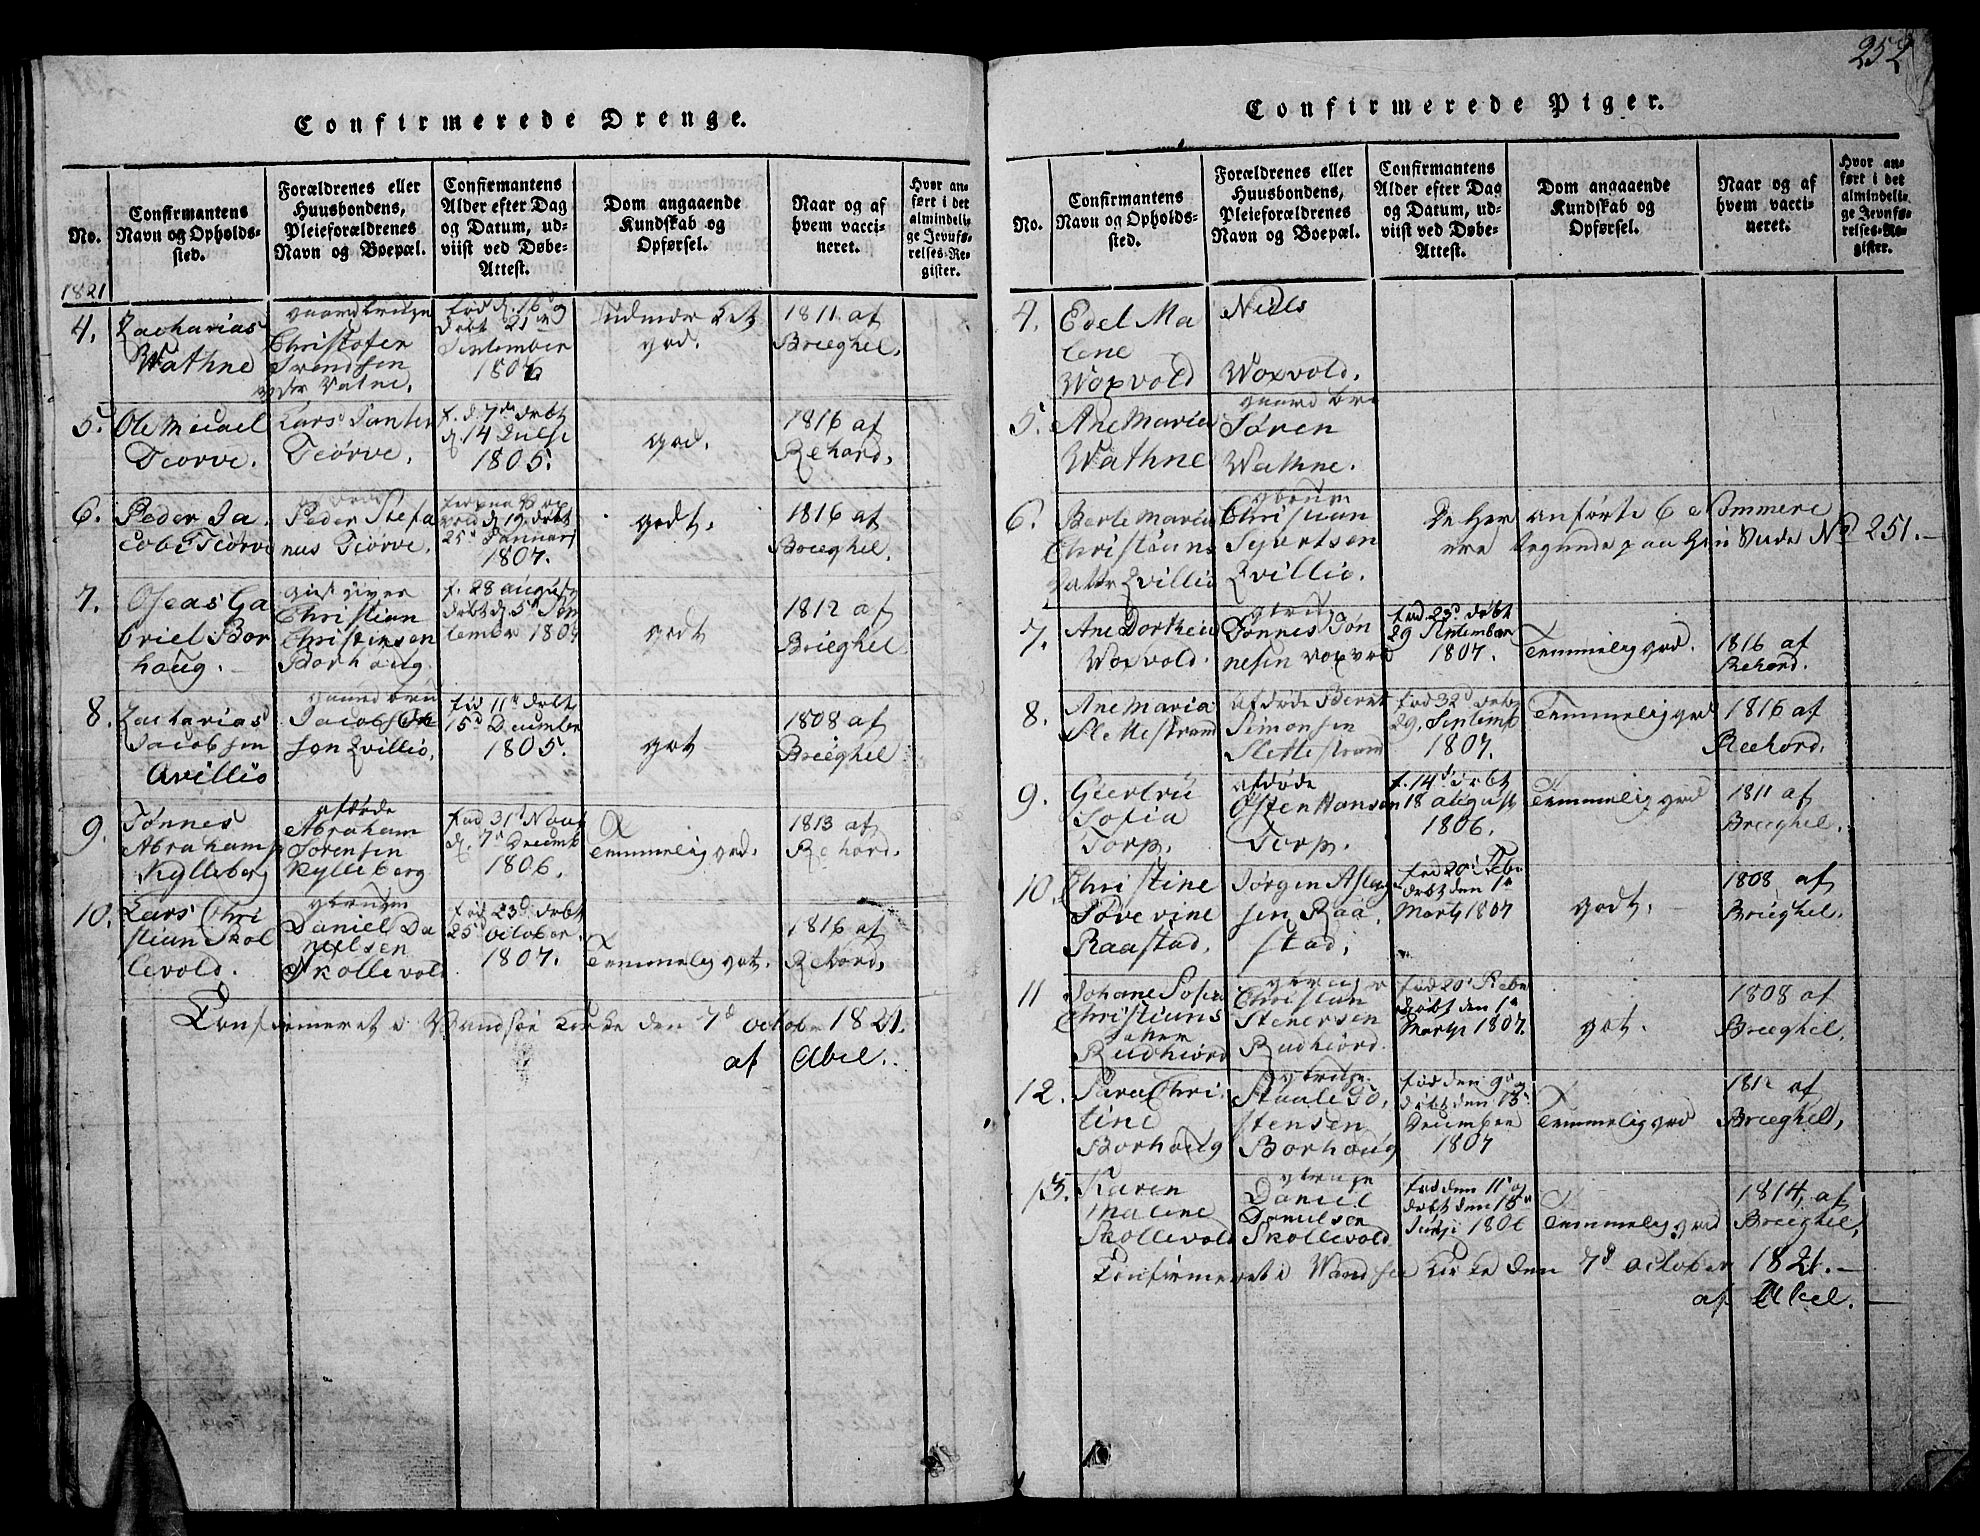 252
Confirmerede Drenge.
No.
Confirmantens
Navn og Opholds-
sted.
Forældrenes eller
Huusbondens,
Pleieforældrenes
Navn og Boepæl.
Confirmantens
Alder efter Dag
og Datum, ud-
viist ved Døbe-
Attest.
Dom angaaende
Kundskab og
Opførsel.
Naar og af
hvem vacci-
neret.
Hvor an-
ført i det
almindeli-
ge Jevnfø-
relses-Re-
gister.
1821
4.
Zacharias
Wathne
gaardbruge
Christofer
Svendsen
Vatne.
fød d. 16 og
døbt 21 d
September
1806
Udmærket
god.
1811 af
Brieghel.
5.
Ole Micael
Tiørve.
Lars
Tiørve.
f. d. 7de døbt
d. 14 Julii
1805.
god.
1816 af
Rehord.
6.
Peder Ja
cobi Tiørve
Peder Stefa
nus Tiørve.
d 19 døbt
25d Januari
1807.
godt.
1816 af
Brieghel.
7.
Oseas Ga
briel Bor
houg.
giestgiver
Christian
Christensen
Borhoug.
f. 28 august
døbt d. 5d Sep
tember 180
godt
1812 af
Brieghel
8.
Zacharias
Jacobsen
Qvillio
gaardbru
Jacob
sen Qvillio.
fød 11d døbt
15d December
1805.
got
1808 af
Brieghel
9.
Tønnes
Abrahams
Kylleberg
afdøde
Abraham
Sørensen
Kylleberg
fød 31d Nov
d. 7d Decemb
1806.
Temmelig god.
1813 af
Rehord.
10.
Lars Chri
stian Skol
levold.
gbruger
Daniel Da
nielsen
Skollevold
fød 23d døbt
25d october
1807.
Temmelig got.
1816 af
Rehord.
Confirmeret i Vandsøe Kirke den 7d octobr 1821.
af Abel.
Confirmerede Piger.
No.
Confirmantens
Navn og Opholds-
sted.
Forældrenes eller
Huusbondens,
Pleieforældrenes
Navn og Boepæl.
Confirmantens
Alder efter Dag
og Datum, ud-
viist ved Døbe-
Attest.
Dom angaaende
Kundskab og
Opførsel.
Naar og af
hvem vacci-
neret.
Hvor an-
ført i det
almindeli-
ge Jevnfø-
relses-Re-
gister.
4.
Edel Ma
lene
Woxvold
Niels
Woxvold.
5.
Ane Maria
Wathne
gaardbru
Søren
Wathne.
6.
Berte Maria
Christians
datter Qvillio
gbrug
Christian
Syvertsen
Qvillio.
De her anførte 6 Nommere
ere tegnede paa Hin Side No 251.
7.
Ane Dorthea
Woxvold.
gbrug
Tønnes Tøn
nesen Woxvold
fød 23d døbt
29 September
1807.
Temmelig god.
1816 af
Rehord.
8.
Ane Maria
Slettestrand
afdøde Bernt
Simonsen
Slettestrand
29. Septemb
1807.
Temmelig god
1816 af
Reehord.
9.
Giertru
Sofia
Torp.
afdøde
Osten Hansen
Torp.
f. 14d døbt
18 august
1806.
Temmelig god
1811 af
Brieghel.
10.
Christine
Severine
Raastad.
Jørgen Aslag
sen Raa
stad.
fød 20d Febr
døbt den 1d
Marty 1807
godt.
1808 af
Brieghel.
11
Johane Sofia
Christians
datter
Rudhiord
gbruger
Christian
Stenersen
Rudhiord.
fød 20d Febr
døbt den 1d
Marty 1807.
got.
1808 af
Brieghel.
12.
Sara Chri
tine
Borhoug
gbruge
Staale To
stensen
Borhoug
fød den 9 og
døbt den 18
December
1807
Temmelig god
1812 af
Brieghel,
13.
Karen
Malene
Skollevold
gbruge
Daniel
Danielsen
Skollevold
fød den 11d og
døbt den 18d
1806
Temmelig god
1814, af
Brieghel,
Confirmeret i Wandsøe Kirke den 7d october 1821.
af Abel.